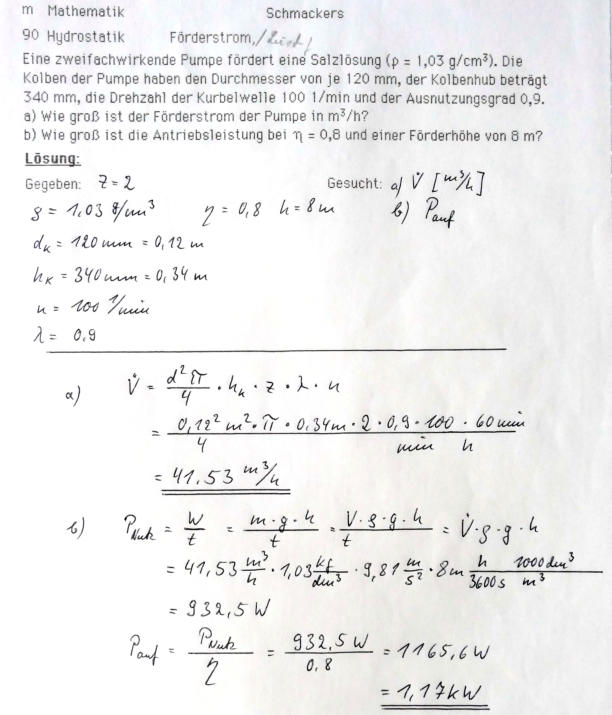 m Mathematik Schmackers
90 Hydrostatik Förderstrom,
Eine zweifachwirkende Pumpe fördert eine Salzlösung (ρ = 1,03 g/cm³). Die
Kolben der Pumpe haben den Durchmesser von je 120 mm, der Kolbenhub beträgt
340 mm, die Drehzahl der Kurbelwelle 100 1/min und der Ausnutzungsgrad 0,9.
a) Wie groß ist der Förderstrom der Pumpe in m³/h?
b) Wie groß ist die Antriebsleistung bei η = 0,8 und einer Förderhöhe von 8 m?
Lösung:
Gegeben: z = 2 Gesucht: a) V̇ [m³/h]
ρ = 1,03 g/cm³ η = 0,8 h = 8 m b) P_auf
d_K = 120 mm = 0,12 m
h_K = 340 mm = 0,34 m
n = 100 1/min
λ = 0,9
a) V̇ = d²π/4 · h_K · z · λ · n
= 0,12² m² · π · 0,34 m · 2 · 0,9 · 100 · 60 min / 4 min h
= 41,53 m³/h
b) P_Nutz = W/t = m · g · h/t = V · ρ · g · h/t = V̇ · ρ · g · h
= 41,53 m³/h · 1,03 kg/dm³ · 9,81 m/s² · 8 m h/3600 s 1000 dm³/m³
= 932,5 W
P_auf = P_Nutz/η = 932,5 W/0,8 = 1165,6 W
= 1,17 kW